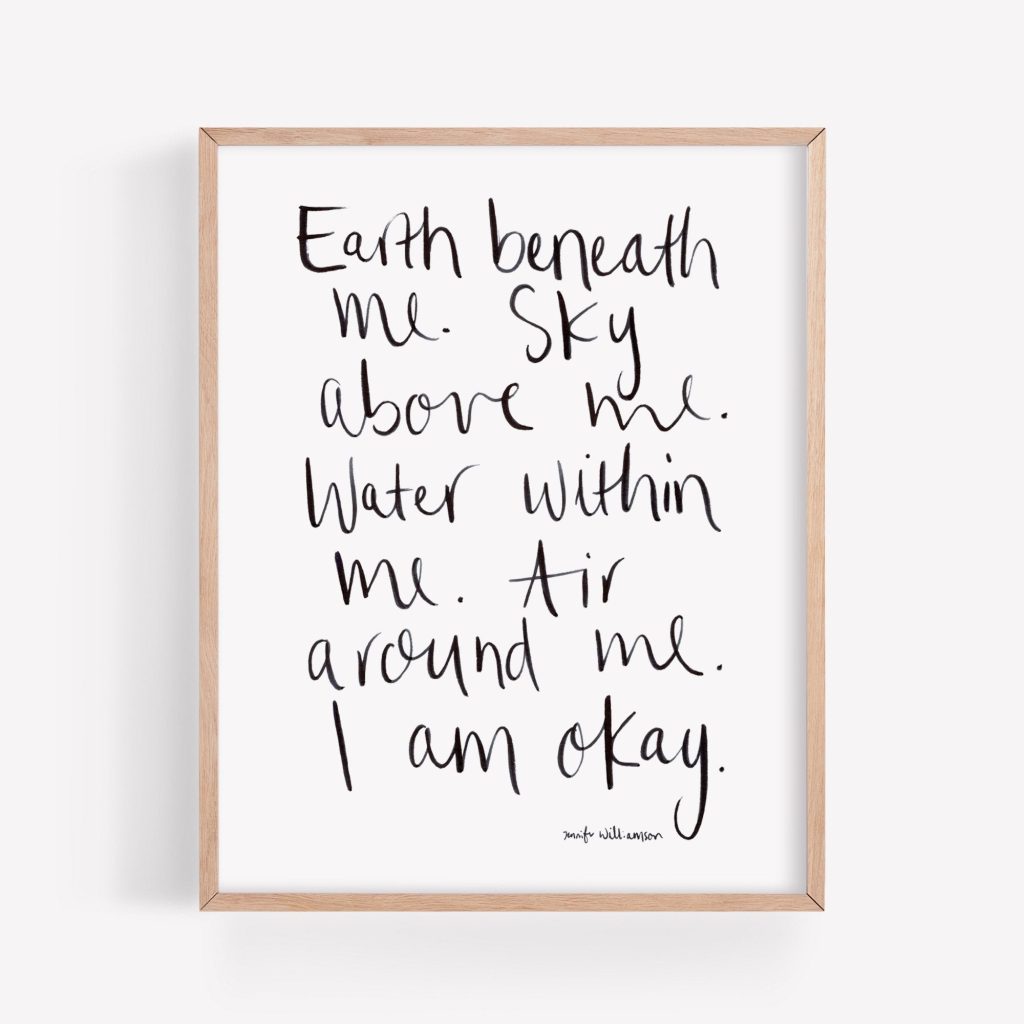 Earth beneath
me. Sky
above me.
Water within
me. Air
around me.
I am okay.
Jennifer Williamson